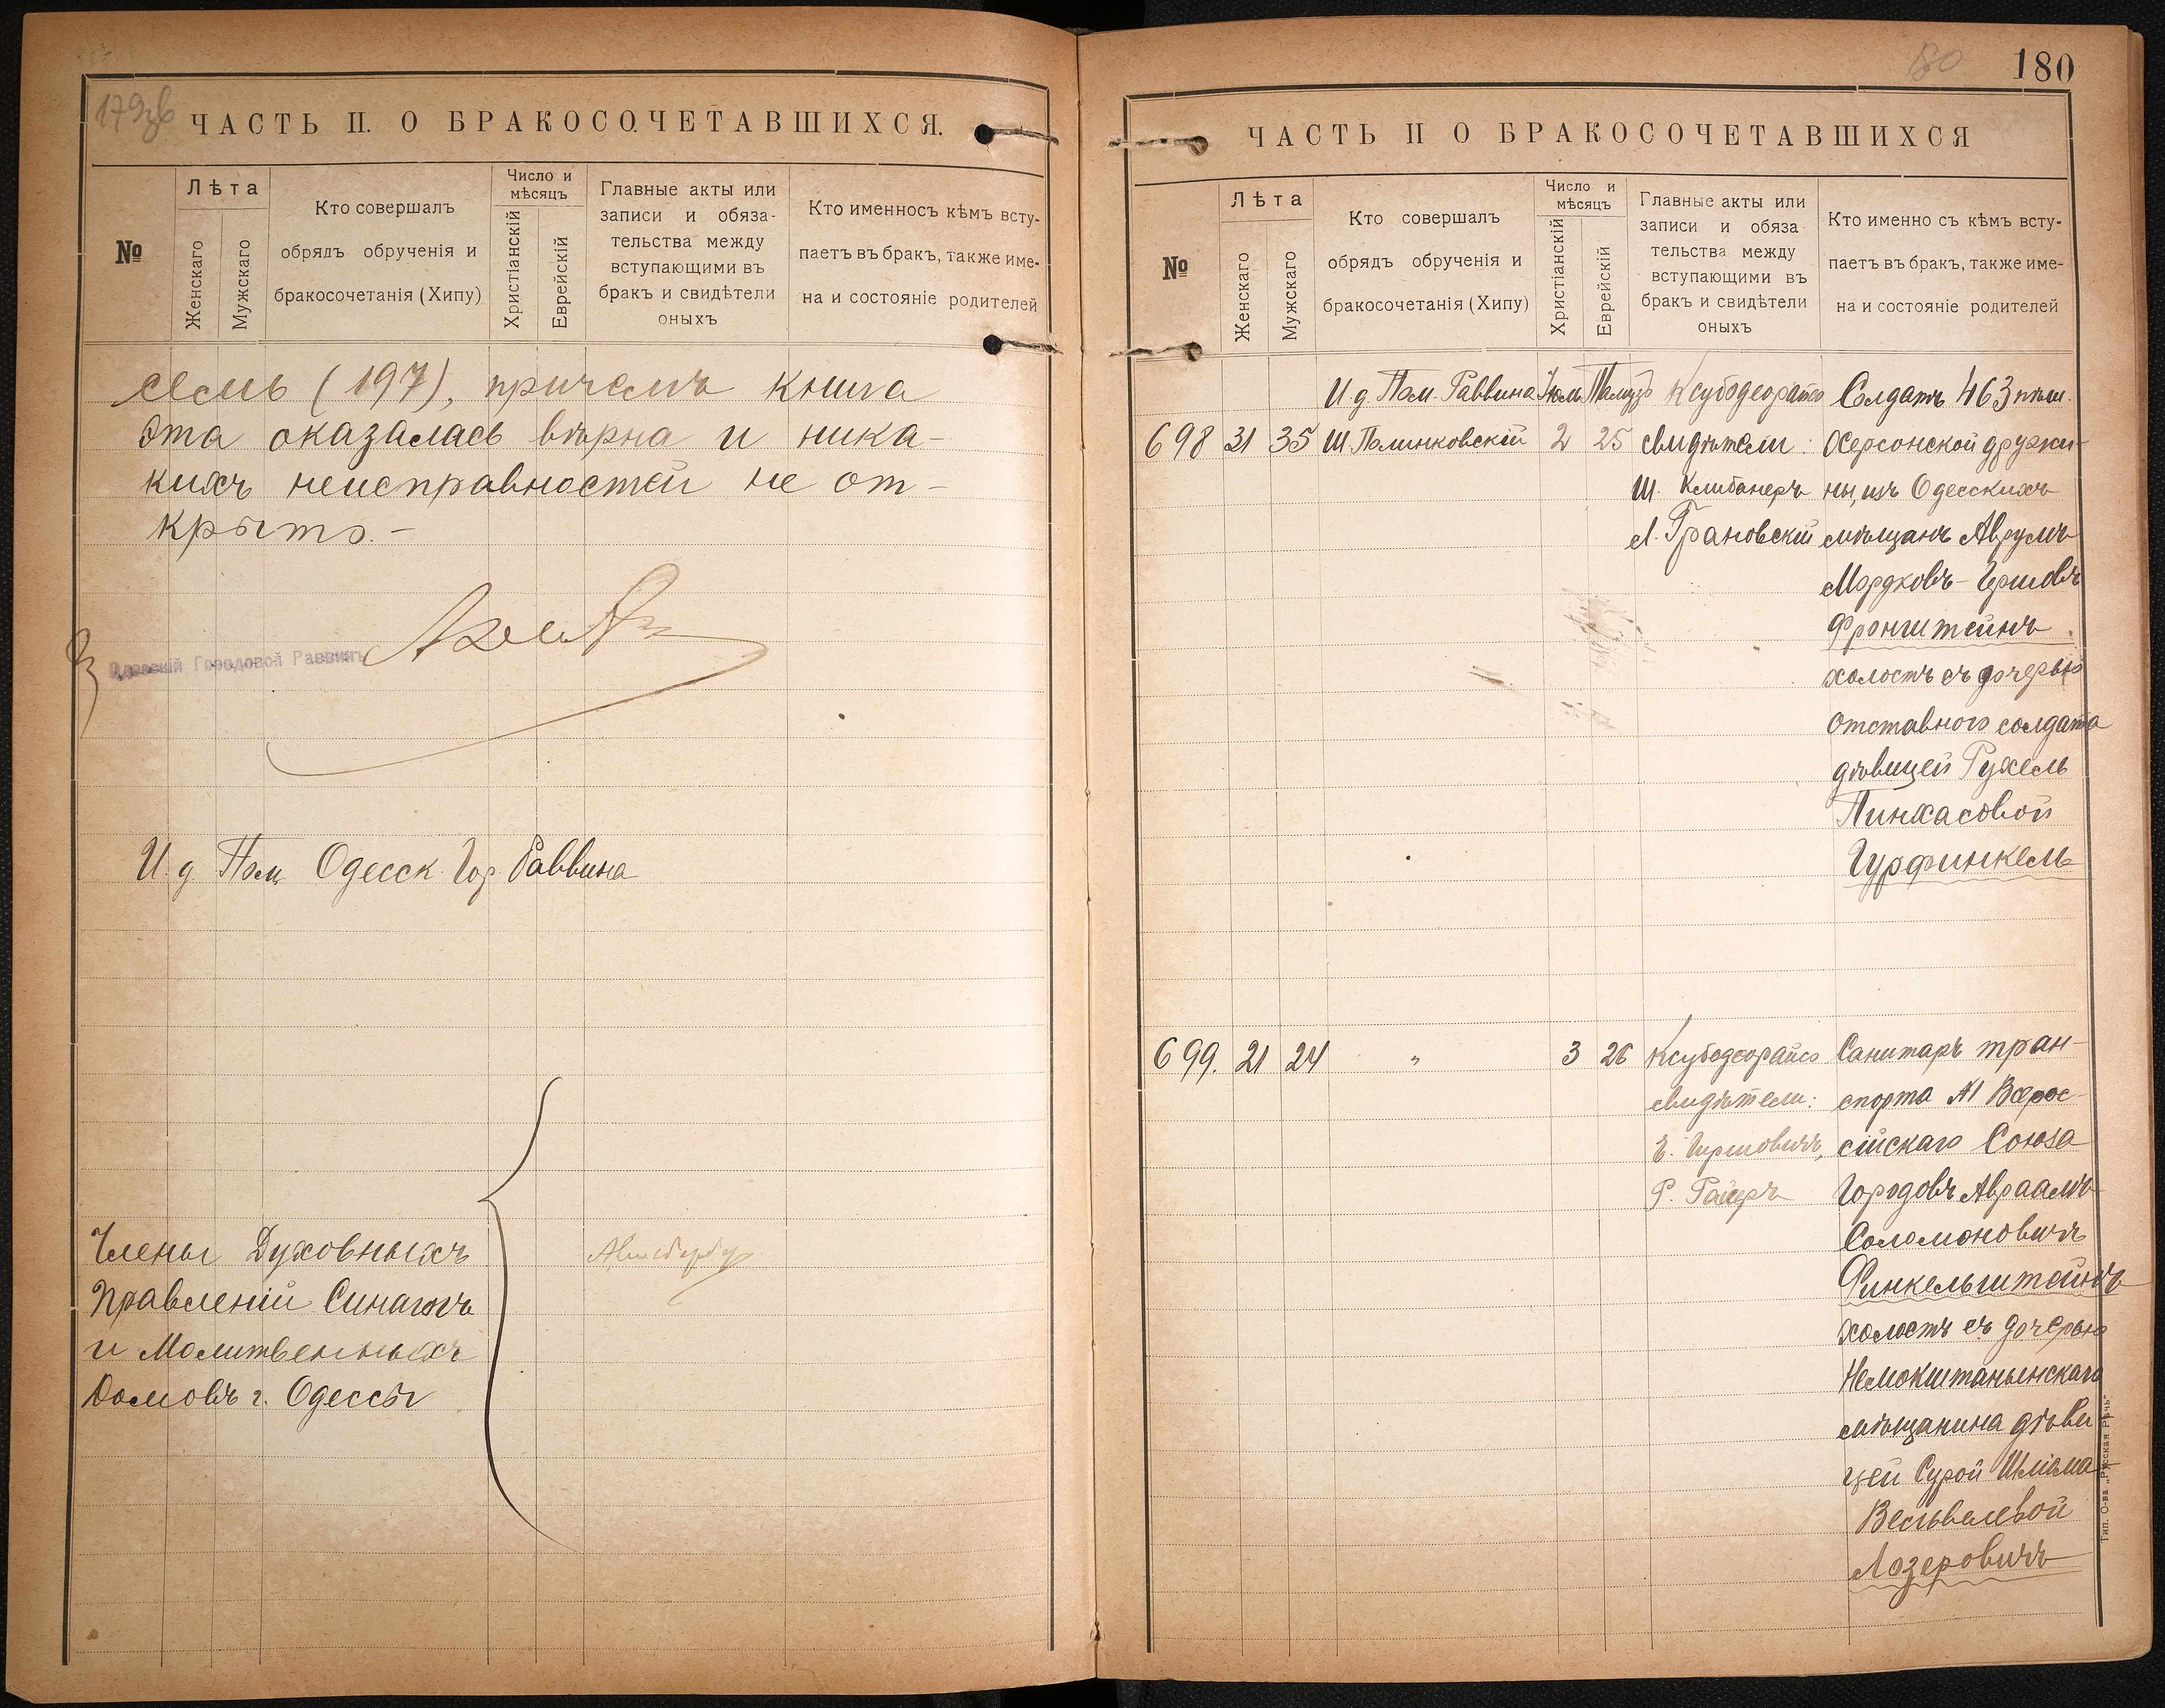 179об
ЧАСТЬ II. О БРАКОСОЧЕТАВШИХСЯ.
№
Лѣта
Женскаго
Мужскаго
Кто совершалъ
обрядъ обрученія и
бракосочетанія (Хипу)
Число и
мѣсяцъ
Христіанскій
Еврейскій
Главные акты или
записи и обяза-
тельства между
вступающими въ
бракъ и свидѣтели
оныхъ
Кто именно съ кѣмъ всту-
паетъ въ бракъ, также име-
на и состояніе родителей
семь (197), причемъ книга
эта оказалась вѣрна и ника-
кихъ неисправностей не от-
крыто.-
Одесскій Городовой Раввинъ
И. д. Пом. Одесск. Гор. Раввина
Члены Духовныхъ
Правленій Синагогъ
и Молитвенныхъ
Домовъ г. Одессы
180
180
ЧАСТЬ II О БРАКОСОЧЕТАВШИХСЯ
№
Лѣта
Женскаго
Мужскаго
Кто совершалъ
обрядъ обрученія и
бракосочетанія (Хипу)
Число и
мѣсяцъ
Христіанскій
Еврейскій
Главные акты или
записи и обяза
тельства между
вступающими въ
бракъ и свидѣтели
оныхъ
Кто именно съ кѣмъ всту-
паетъ въ бракъ, также име-
на и состояніе родителей
И. д. Пом. Раввина Іюль Тамузъ Ксубодеорайсо Солдатъ 463 пѣш.
698 31 35 Ш. Полинковскій 2 25 свидѣтели: Херсонской дружи-
Ш. Клибанеръ ны, изъ Одесскихъ
Л. Грановскій мѣщанъ Аврумъ
Мордковъ-Гершовъ
Фронштейнъ
холостъ съ дочерью
отставного солдата
дѣвицей Рухель
Пинхасовой
Гурфинкель
699. 21 24 " 3 26 Ксубодеорайсо Санитаръ тран-
свидѣтели: спорта №1 Всерос-
Гиршовичъ, сійскаго Союза
Р. Городовъ Авраамъ
Соломоновичъ
Финкельштейнъ
холостъ съ дочерью
Немокштанынскаго
мѣщанина дѣви
цей Сурой Шліома
Весьвелевой
Лозеровичъ
Тип. О-ва „Русская Рѣчь"